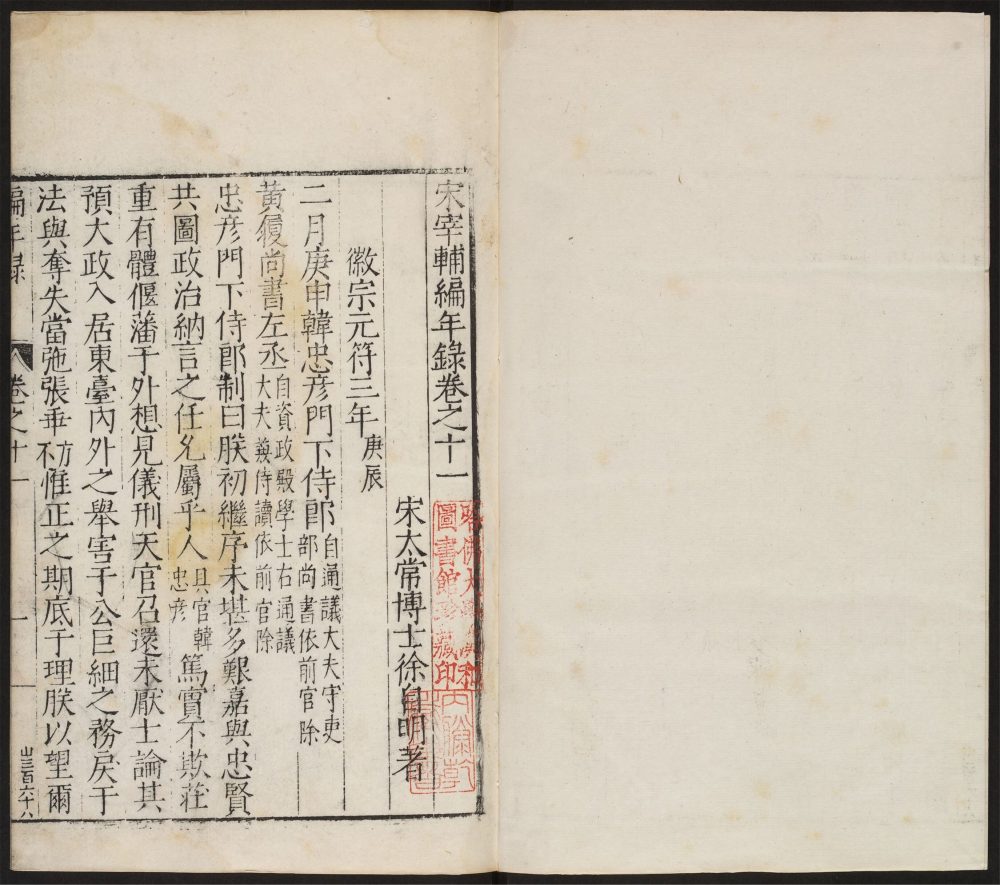 宋宰輔編年錄卷之十一
宋太常博士徐自明著
徽宗元符三年庚辰
二月庚申韓忠彦門下侍郎自通議大夫守吏部尚書依前官除
黄履尚書左丞自資政殿學士右通議大夫兼侍讀依前官除
忠彦門下侍郎制曰朕初繼序未堪多艱嘉與忠賢
共圖政治納言之任允屬乎人具官韓忠彦篤實不欺莊
重有體偃藩于外想見儀刑天官召還未厭士論其
預大政入居東臺內外之舉害于公巨細之務戾于
法與奪失當弛張乖方不惟正之期底于理朕以望爾
編年錄
卷之十一
一
山三百六十八
圖書館珍藏印